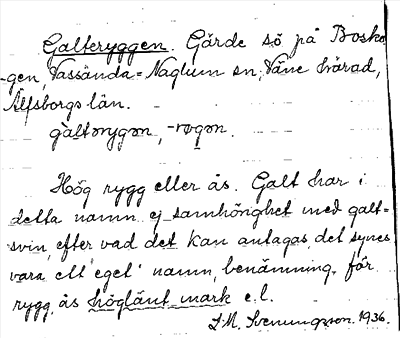 Galteryggen. Gärde sö på Bosko-
-gen, Vassända=Naglum sn, Väne härad,
Älfsborgs län.
gàltərygən, -rogən.
Hög rygg eller ås. Galt har i
detta namn ej samhörighet med galt=
svin, efter vad det kan antagas, det synes
vara ett "eget" namn, benämning, för
rygg, ås, höglänt mark e.l.
S.M. Svenungsson. 1936.